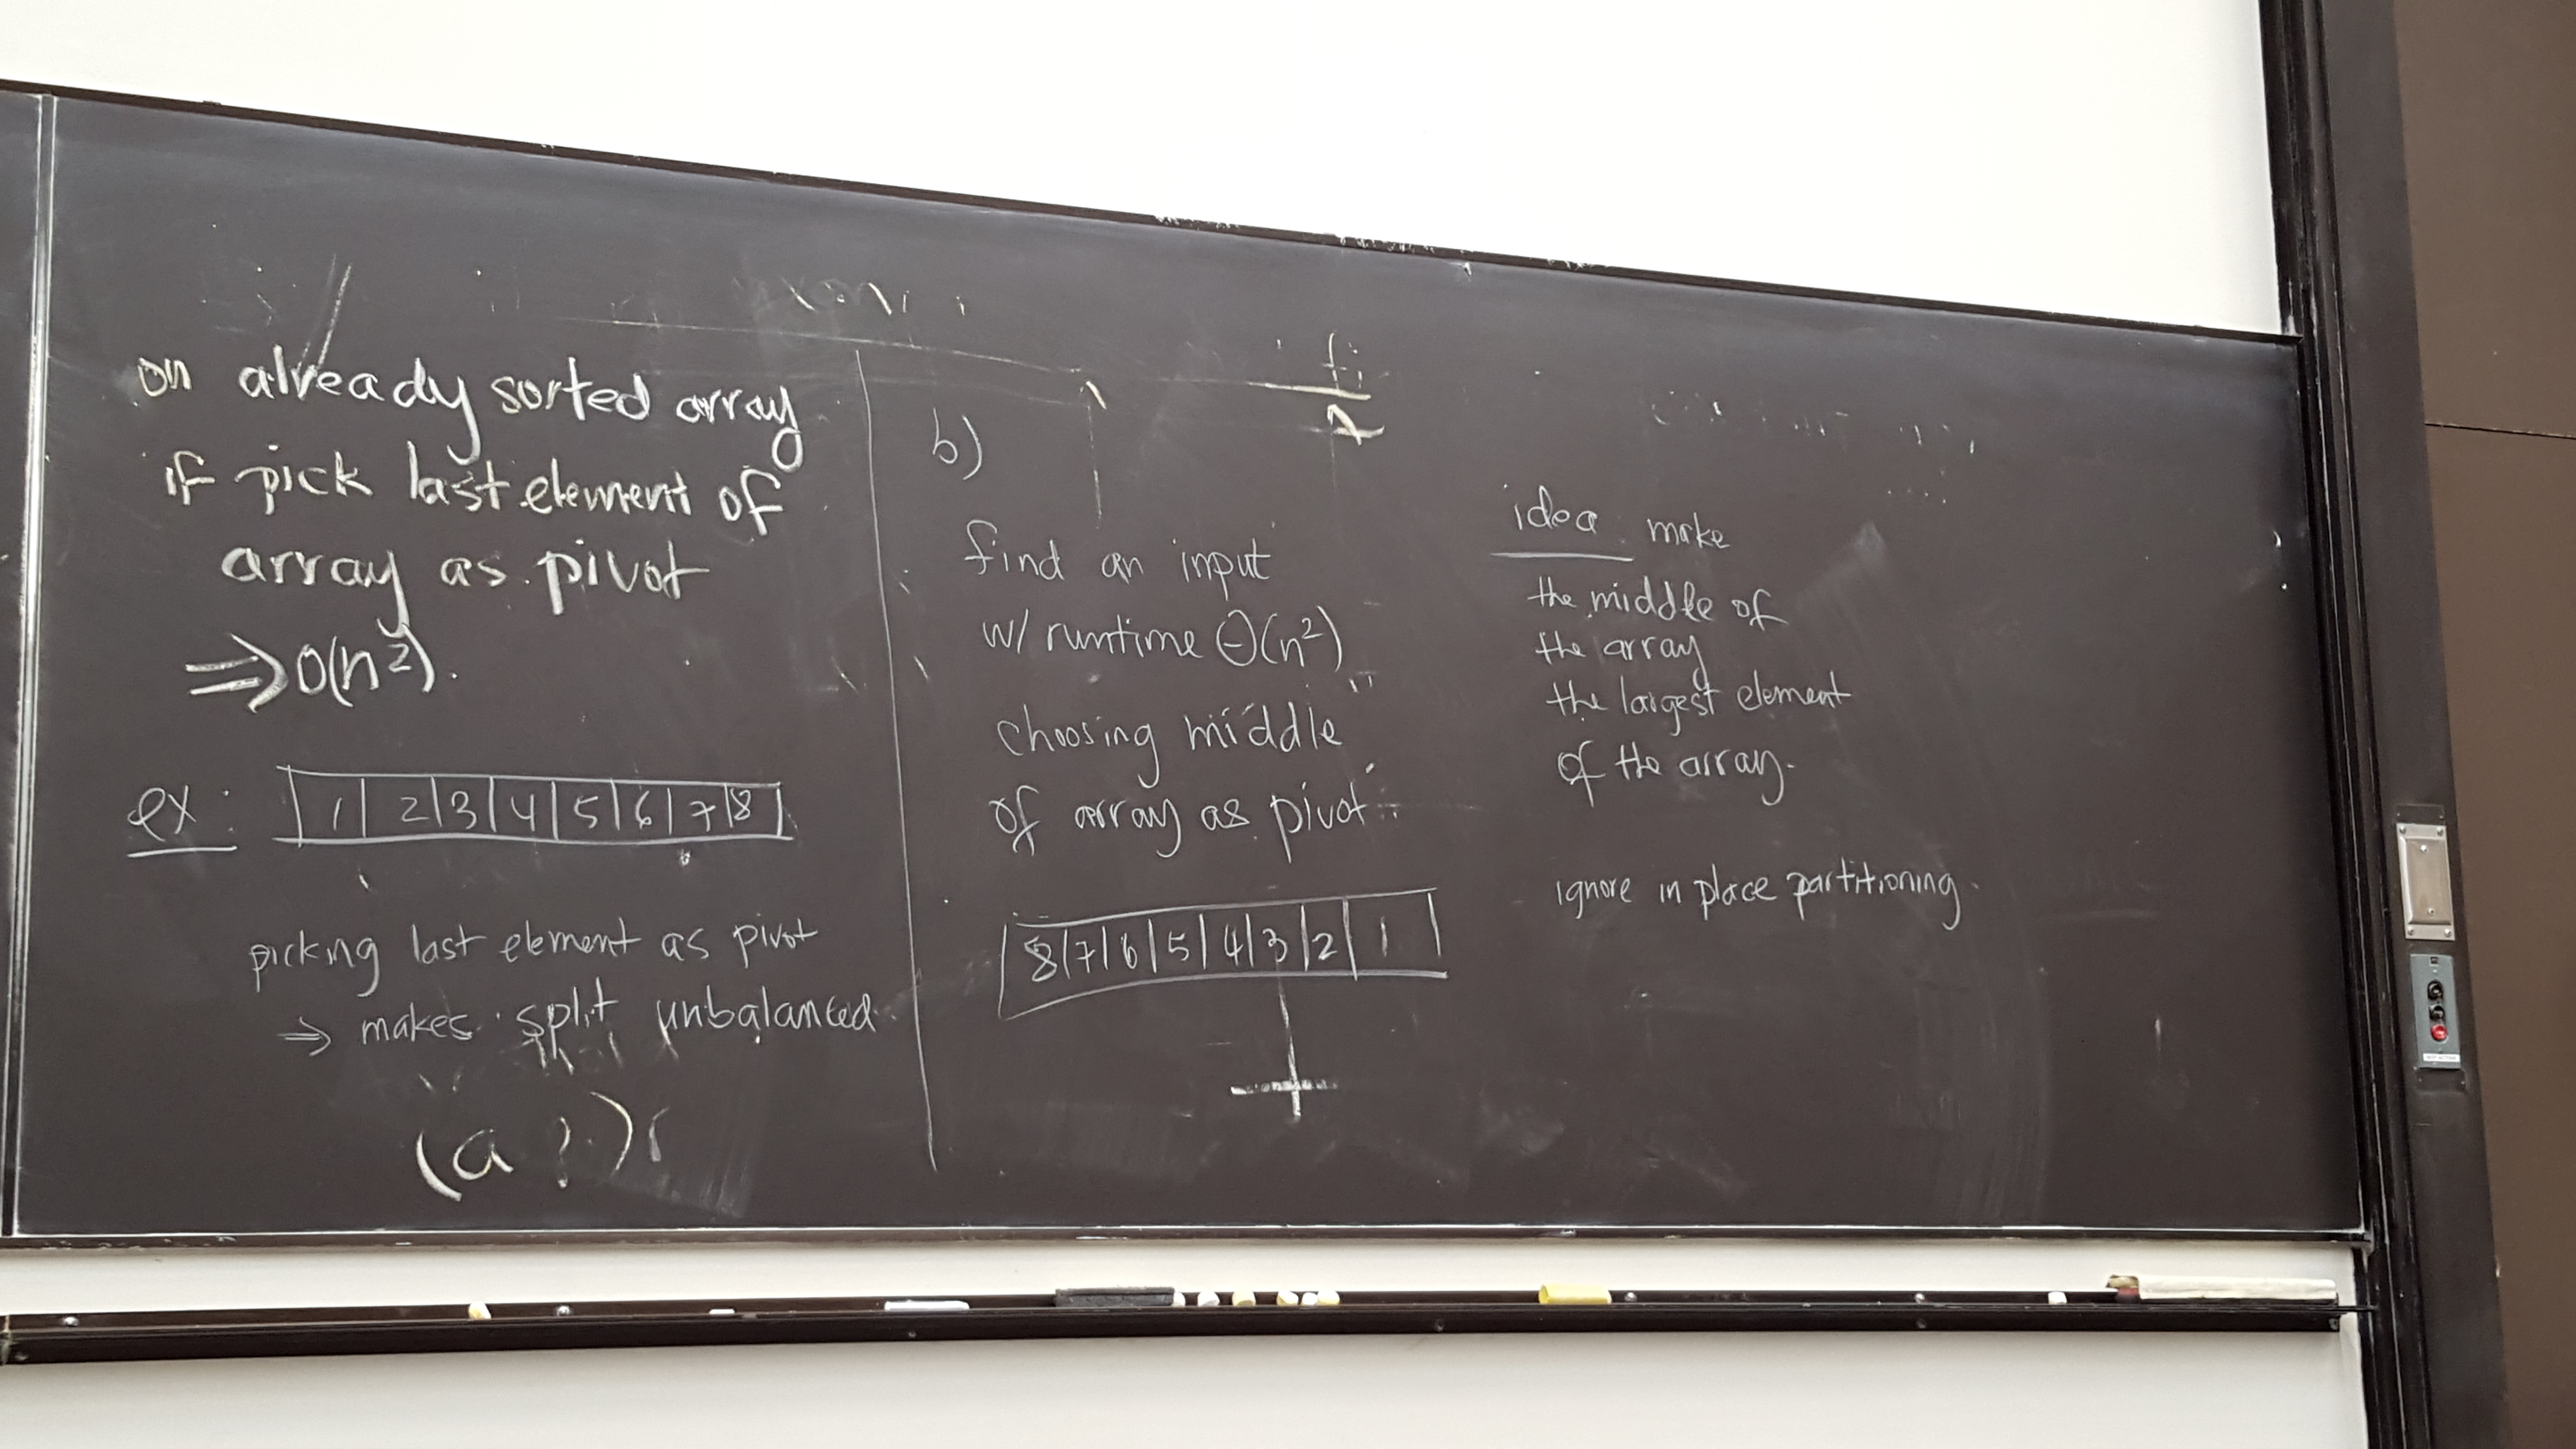 on already sorted array
if pick last element of
array as pivot
⇒ O(n²).
ex: 1 2 3 4 5 6 7 8
picking last element as pivot
⇒ makes split unbalanced
(a ?)
b)
find an input
w/ runtime Θ(n²)
choosing middle
of array as pivot
8 7 6 5 4 3 2 1
idea: make
the middle of
the array
the largest element
of the array.
ignore in place partitioning.